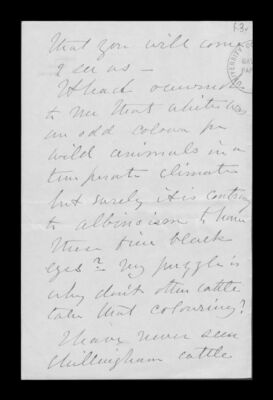 that you will come
& see us —
It has occurred
to me that white is
an odd colour for
wild animals in a
temperate climate
but surely it is contrary
to albinoism to have
these true black
eyes? My puzzle is
why don't other cattle
take that colouring?
I have never seen
Chillingham cattle